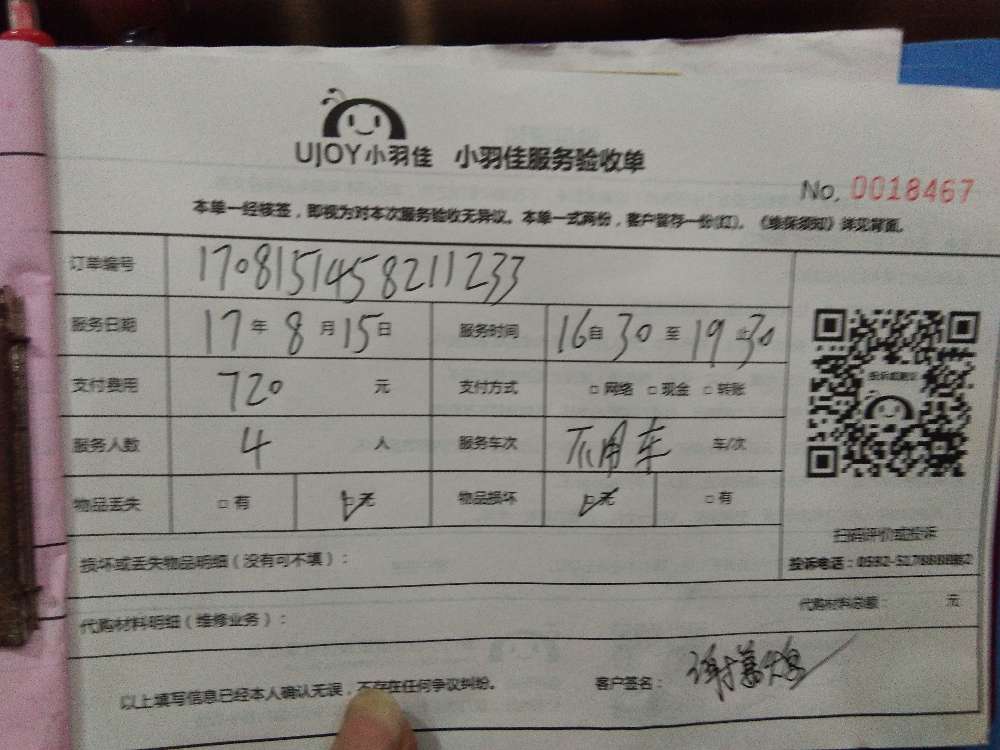 UJOY小羽佳 小羽佳服务验收单
No. 0018467
本单一经核签，即视为对本次服务验收无异议。本单一式两份，客户留存一份(红)。《维保须知》详见背面。
订单编号 1708151458211233
服务日期 17年8月15日 服务时间 16自30至19止30
支付费用 720 元 支付方式 □网络 □现金 □转账
服务人数 4 人 服务车次 不用车 车/次
物品丢失 □有 ☑无 物品损坏 ☑无 □有
扫码评价或投诉
损坏或丢失物品明细（没有可不填）：
代购材料明细（维修业务）： 代购材料总额： 元
以上填写信息已经本人确认无误，不存在任何争议纠纷。 客户签名：